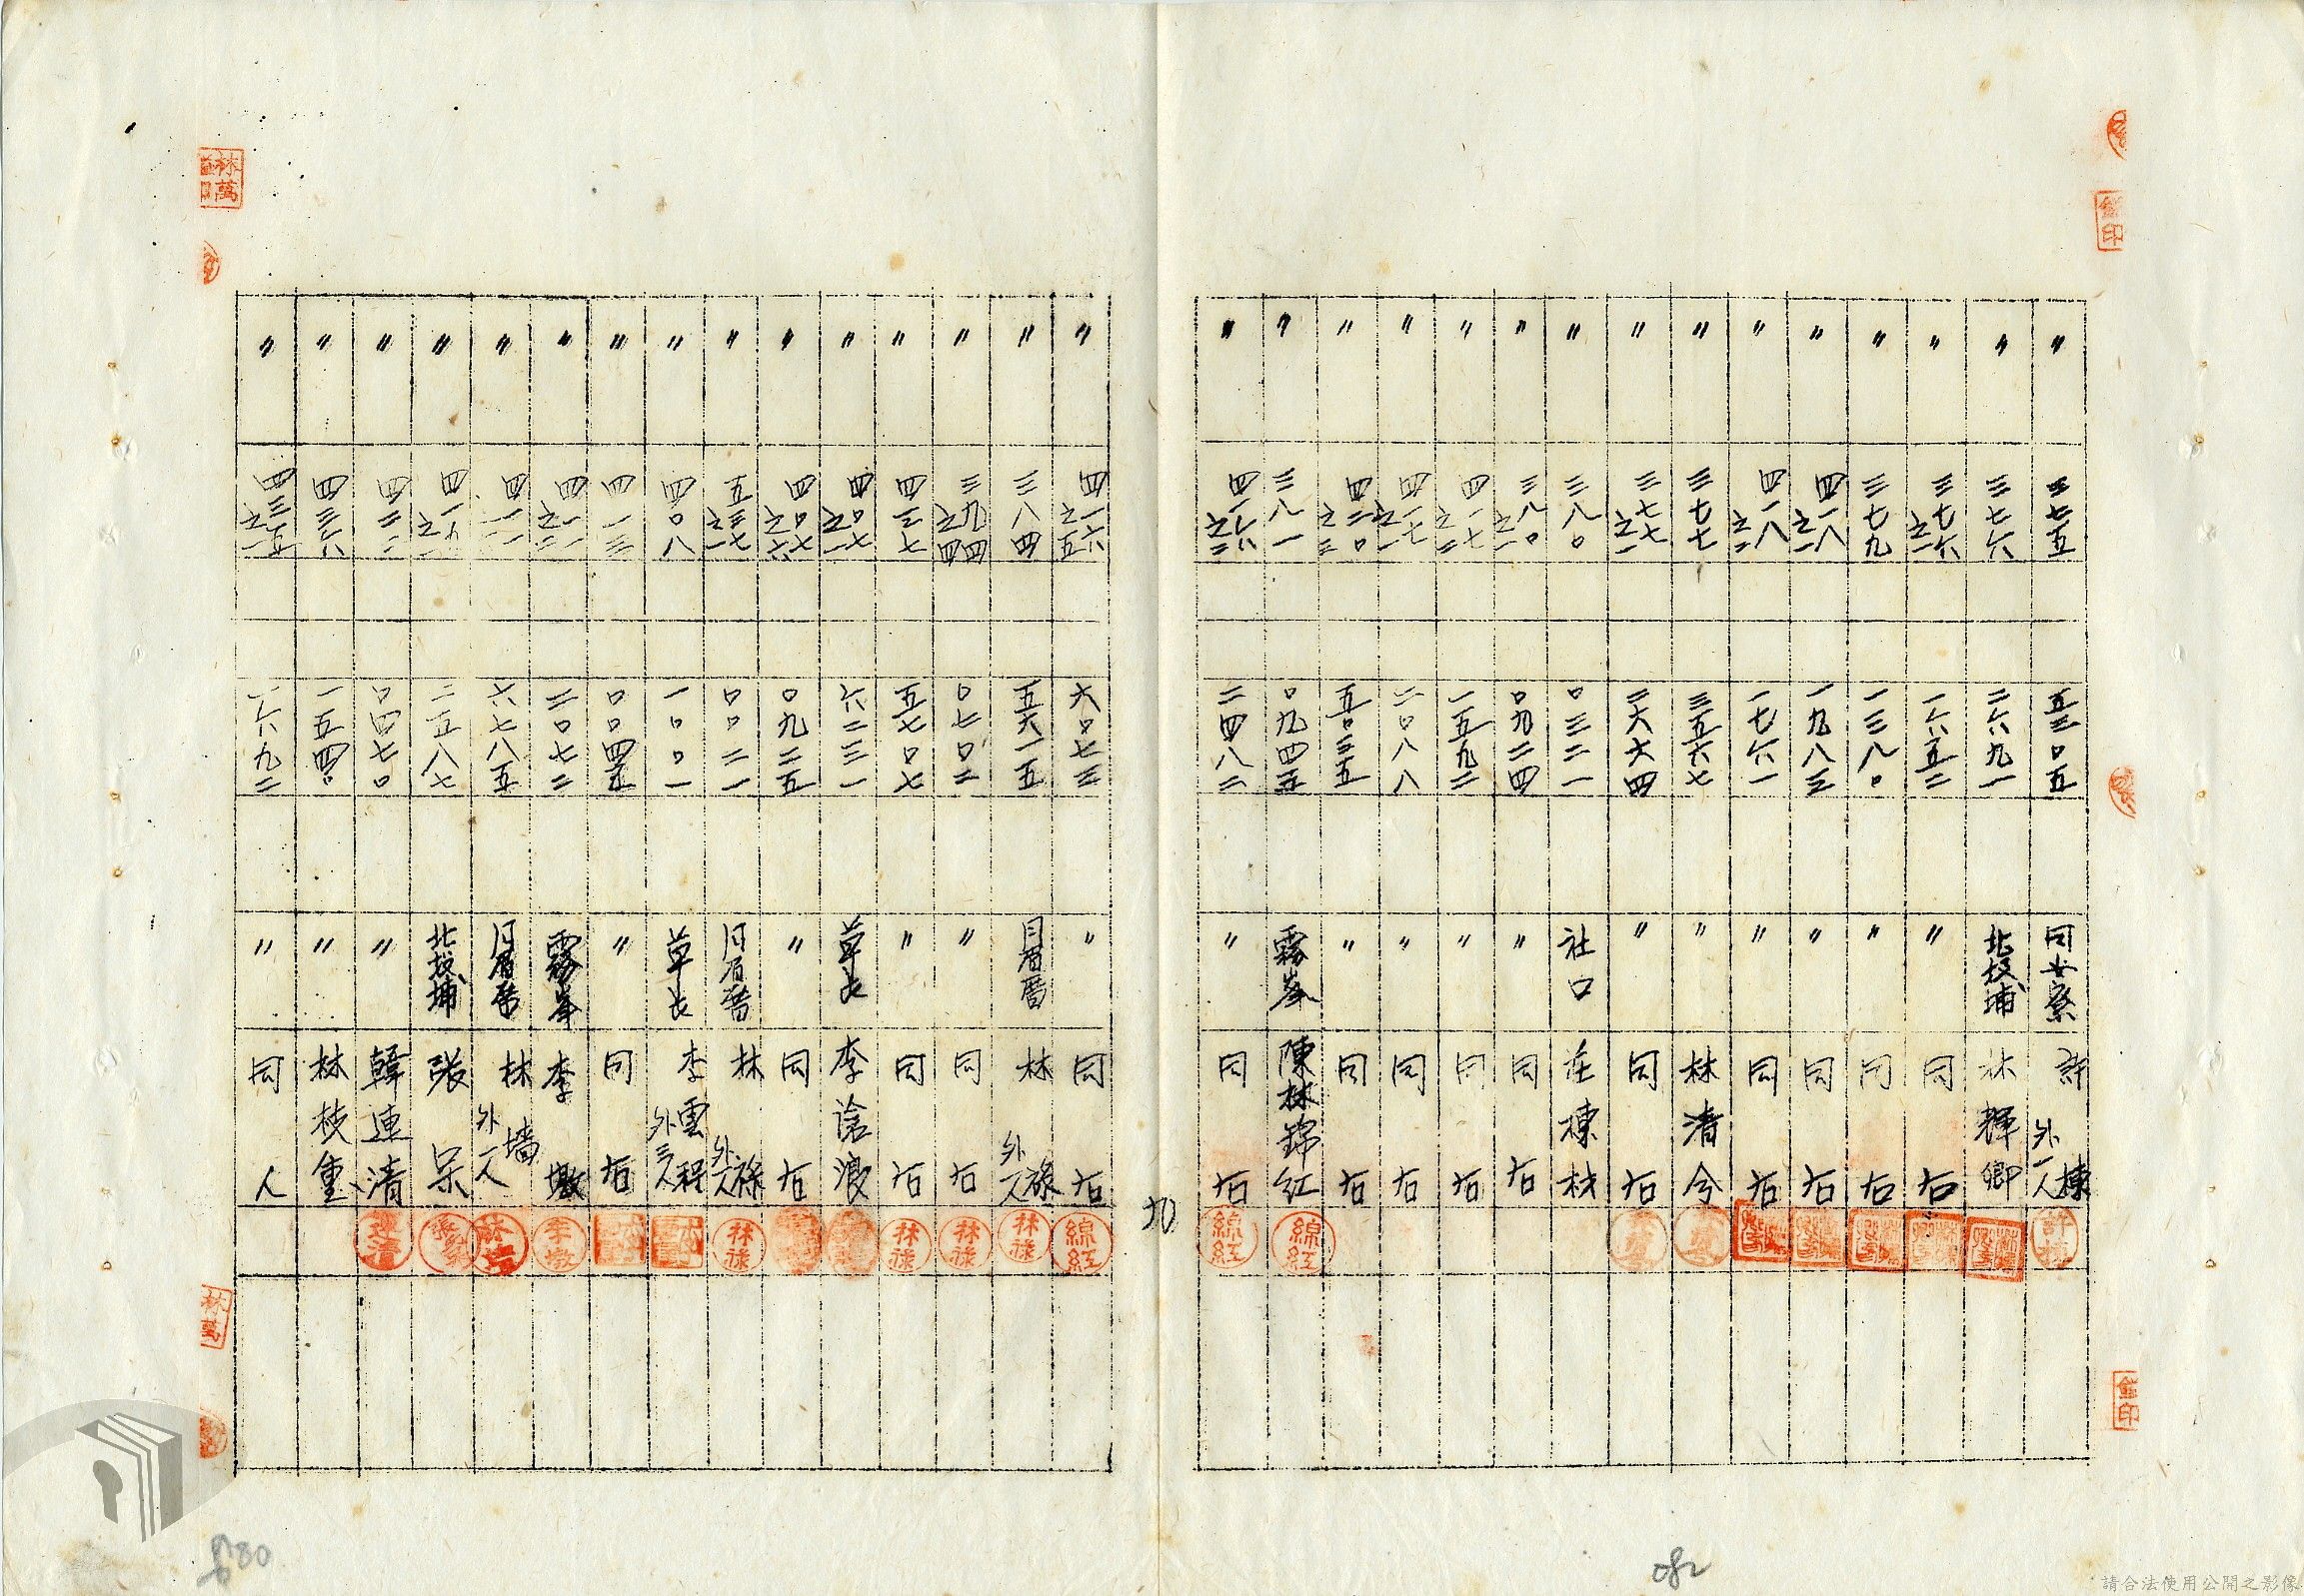 〃 三七五 五三〇五 同安寮 許棟 外一人
〃 三七六 二六九一 北投埔 林輝卿
〃 三七六之一 一六五二 〃 同右
〃 三七九 一三八〇 〃 同右
〃 四一八之一 一九八三 〃 同右
〃 四一八之二 一七六一 〃 同右
〃 三七七 三五六七 〃 林清今
〃 三七七之一 二六六四 〃 同右
〃 三八〇 〇三二一 社口 庄棟材
〃 三八〇之一 〇九二四 〃 同右
〃 四一七之二 一五九二 〃 同右
〃 四一七之一 二〇八八 〃 同右
〃 四二〇之三 五〇三五 〃 同右
〃 三八一 〇九四五 霧峯 陳林錦紅
〃 四一六之三 二四八二 〃 同右
九
〃 四一六之五 六〇七三 〃 同右
〃 三八四 五六一五 月眉厝 林祿 外一人
〃 三九四之四 〇七〇二 〃 同右
〃 四三七 五七〇七 〃 同右
〃 四〇七之一 六二三一 草屯 李滄浪
〃 四〇七之六 〇九二五 〃 同右
〃 五三七之一 〇〇二一 月眉厝 林祿 外一人
〃 四〇八 一〇〇一 草屯 李雲程 外三人
〃 四一三 〇〇四五 〃 同右
〃 四一一之二 二〇七二 霧峯 李墩
〃 四一一 六七八五 月眉厝 林墻 外一人
〃 四一〇之一 二五八七 北投埔 張呆
〃 四三二 〇四七〇 〃 韓連清
〃 四三六 一五四〇 〃 林枝重
〃 四三五之一 一六九二 〃 同人
林萬
金印
林萬
金印
082
請合法使用公開之影像